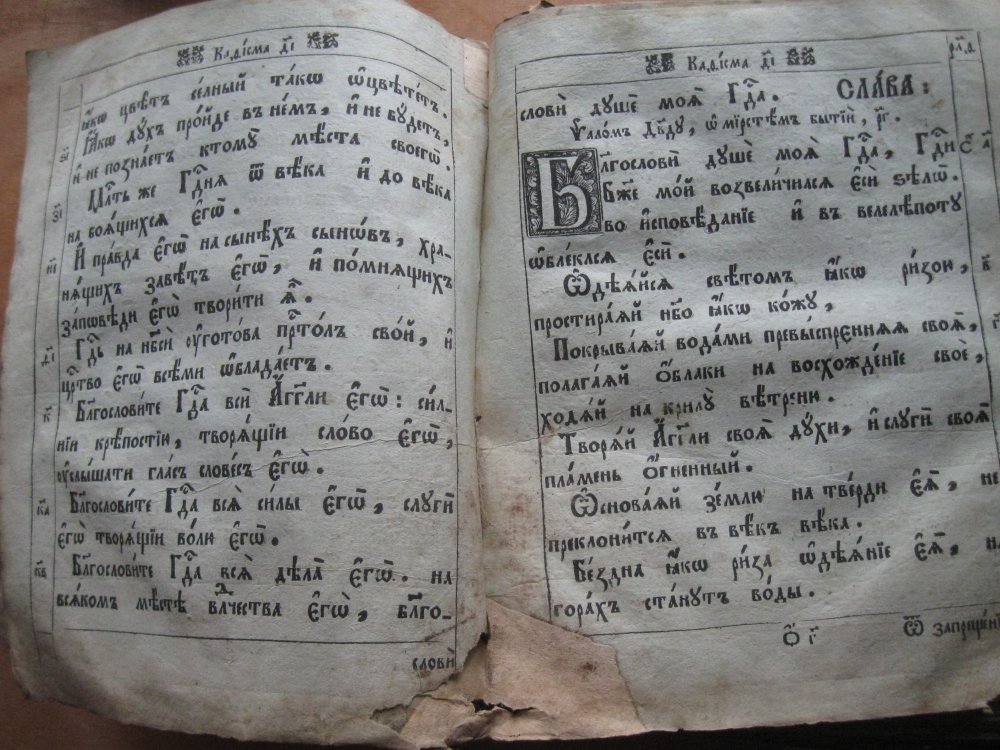 Каѳісма г҃і
ꙗ҆́кѡ цвѣ́тъ се́лный та́кѡ ѿцвѣте́тъ.
Ꙗ҆́кѡ дꙋ́хъ про́йде въ не́мъ, и҆ не бꙋ́детъ,
и҆ не позна́етъ ктомꙋ̀ мѣ́ста своегѡ̀.
Мл҃ть же Гд҇ня ѿ вѣ́ка и҆ до вѣ́ка
на боя́щихся є҆гѡ̀.
И҆ пра́вда є҆гѡ̀ на сынѣ́хъ сынѡ́въ, хра-
ня́щихъ завѣ́тъ є҆гѡ̀, и҆ по́мнящихъ
за́пѡвѣди є҆гѡ̀ твори́ти ѧ҆̀.
Гд҇ь на нб҃сѝ оу҆гото́ва пр҇то́лъ сво́й, и҆
цр҇тво є҆гѡ̀ всѣ́ми ѡ҆блада́етъ.
Бл҃гослови́те Гд҇а всѝ А҆́гг҃ли є҆гѡ̀: си́л-
ніи крѣ́постїи, творѧ́щїи сло́во є҆гѡ̀,
оу҆слы́шати гла́съ слове́съ є҆гѡ̀.
Бл҃гослови́те Гд҇а всѧ̀ си́лы є҆гѡ̀, слꙋгѝ
є҆гѡ̀ творѧ́щїи во́лю є҆гѡ̀.
Бл҃гослови́те Гд҇а всѧ̀ дѣла̀ є҆гѡ̀. на
всѧ́комъ мѣ́стѣ влⷣчества є҆гѡ̀, бл҃го-
словѝ
иі
ѳ҃і
к҃
к҃а
к҃в
Каѳісма г҃і
рл҃д
словѝ дꙋшѐ моѧ̀ Гд҇а. СЛА́ВА:
Ѱало́мъ Дв҃дꙋ, ѡ҆ мїрстѣ́мъ бытїѝ, р҃г.
Бл҃гословѝ дꙋшѐ моѧ̀ Гд҇а, Гд҇и
Бж҃е мо́й возвели́чился є҆сѝ ѕѣлѡ̀.
во и҆сповѣ́даніе и҆ въ велелѣ́потꙋ
ѡ҆бле́клся є҆сѝ.
Ѡ҆дѣѧ́йся свѣ́томъ ꙗ҆́кѡ ри́зою,
простира́ѧй нб҃о ꙗ҆́кѡ ко́жꙋ,
Покрыва́ѧй вода́ми превы́спренняѧ своѧ̀,
полага́ѧй ѻ҆́блаки на восхожде́нїе своѐ,
ходѧ́й на крилꙋ̀ вѣ́трени.
Творѧ́й А҆́гг҃ли своѧ̀ дꙋ́хи, и҆ слꙋгѝ своѧ̀
пла́мень ѻ҆́гненный.
Ѡ҆снова́ѧй зе́млю на тве́рди є҆ѧ̀, не
преклони́тся въ вѣ́къ вѣ́ка.
Бе́здна ꙗ҆́кѡ ри́за ѡ҆дѣѧ́нїе є҆ѧ̀, на
гора́хъ ста́нꙋтъ во́ды.
а҃
в҃
ѻ҃ г҃
Ѿ запреще́н